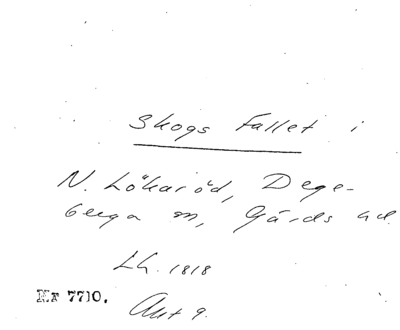 Skogs Fallet i
N. Lökaröd, Dege-
berga sn, Gärds hd.
LG. 1818
Nr 7710.
Akt 9.